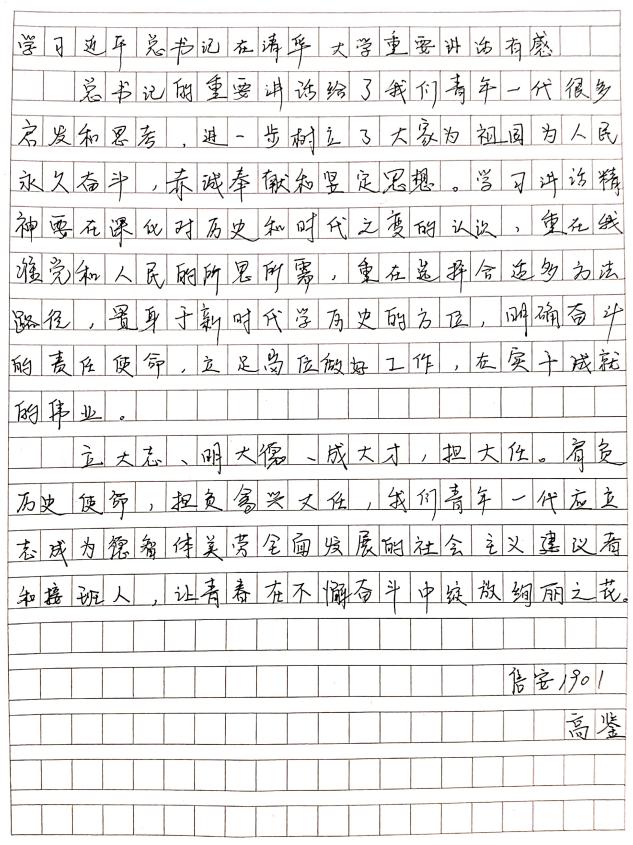 学习近平总书记在清华大学重要讲话有感
总书记的重要讲话给了我们青年一代很多
启发和思考，进一步树立了大家为祖国为人民
永久奋斗，赤诚奉献和坚定思想。学习讲话精
神要在深化对历史和时代之变的认识，重在我
难党和人民的所思所需，重在选择合适多方法
路径，置身于新时代学历史的方位，明确奋斗
的责任使命，立足岗位做好工作，在实干成就
的伟业。
立大志、明大德、成大才，担大任。肩负
历史使命，担负复兴大任，我们青年一代应立
志成为德智体美劳全面发展的社会主义建议者
和接班人，让青春在不懈奋斗中绽放绚丽之花。
信安1901
高鉴